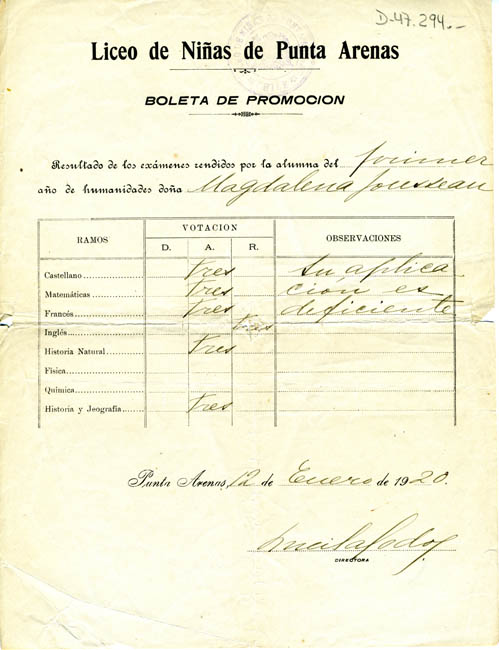 D-47.294.-
Liceo de Niñas de Punta Arenas
BOLETA DE PROMOCION
Resultado de los exámenes rendidos por la alumna del primer
año de humanidades doña Magdalena Jousseau
RAMOS VOTACION OBSERVACIONES
D. A. R.
Castellano tres Su aplica
Matemáticas tres ción es
Francés tres deficiente
Inglés tres
Historia Natural tres
Física
Química
Historia y Jeografía tres
Punta Arenas, 12 de Enero de 1920.
Lucila Godoy
DIRECTORA